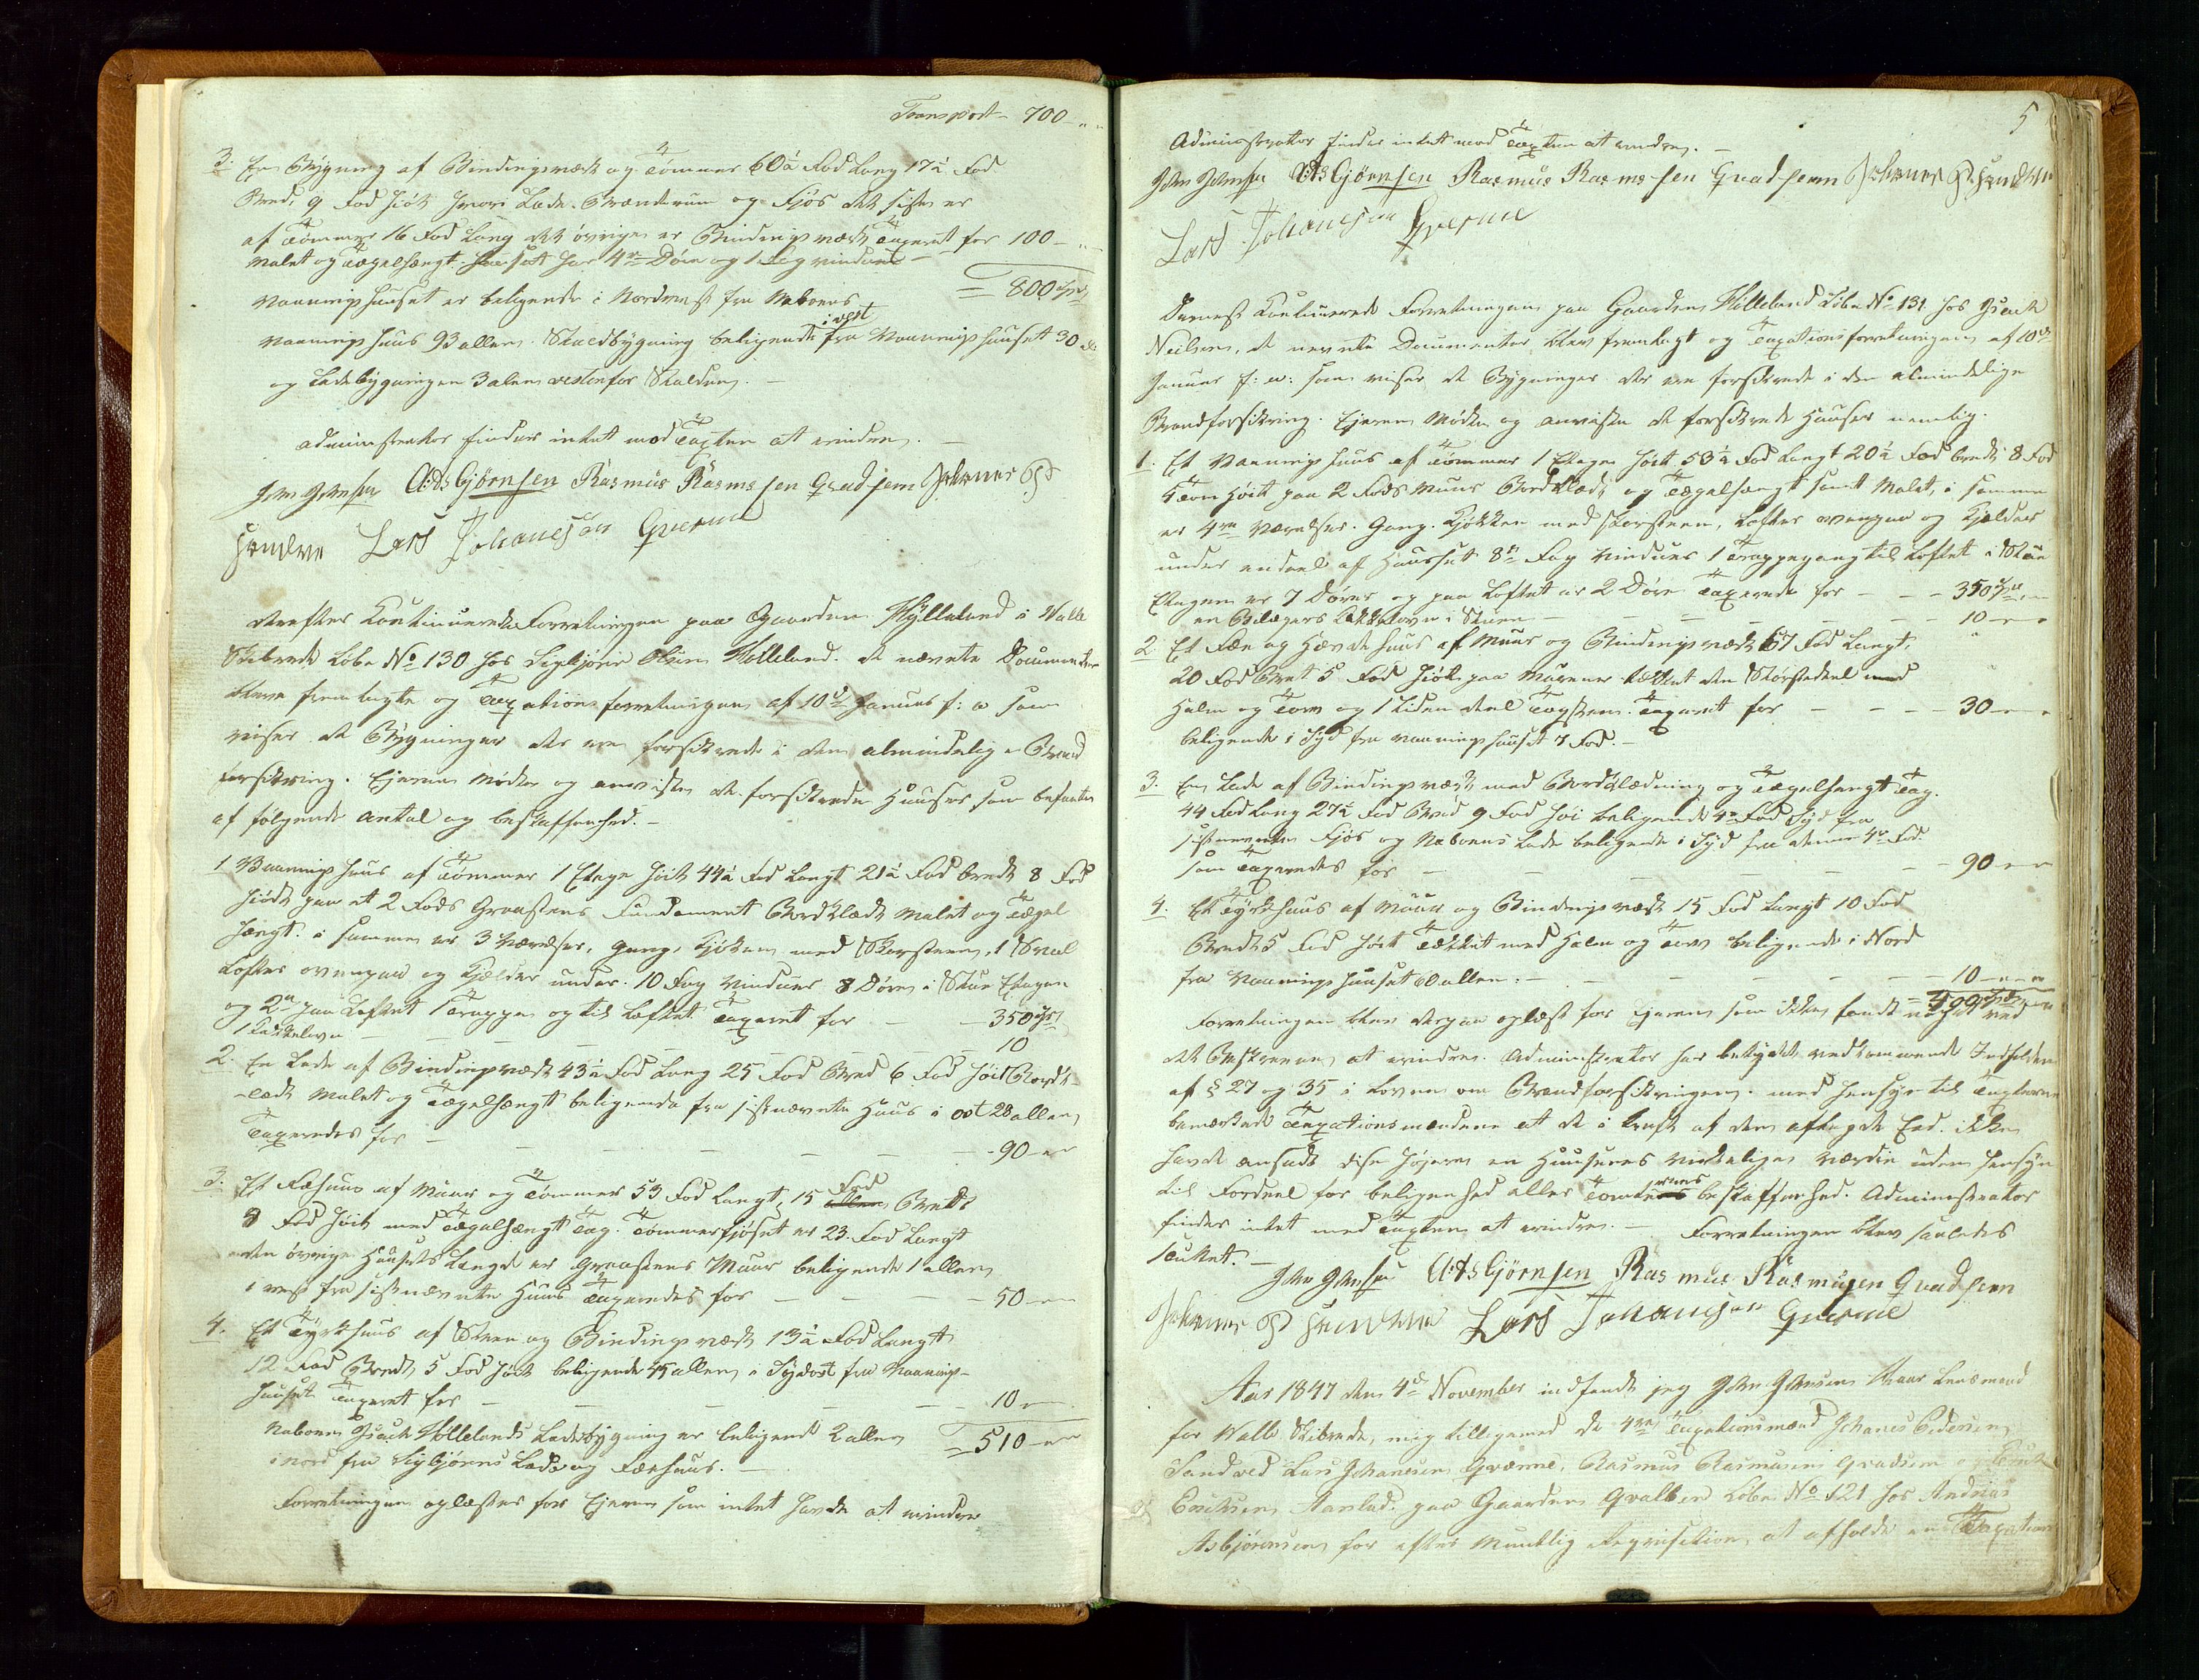 Transport - 700 - „ -
3. En Bygning af Bindingsværk og Tømmer 60½ Fod Lang 17½ Fod
Bred, 9 Fod høit hvori Lade. Brænderum og Fjøs det siste er
af Tømmer 16 Fod Lang det øvrige er Bindingsværk Taxeret for 100 - „ -
Malet og Tægelhængt. Huuset har 4re Døre og 1 Fag vindue -
Vaaningshuuset er beligende i Nordvest fra Naboens = 800 Spd
vaaningshuus 93 allen. Stuebygning beligende i vest fra Vaaningshuuset 30 al
og Ladebygningen 3 alen vestenfor Stalden. -
administrator finder intet mod Taxten at erindre. -
John Johnsen A: Asbjørnsen Rasmus Rasmssen Qvadsem Johanes P
Sandve Lars Johanesen Qverne
derefter Kontinuerede Forretningen paa Gaarden Hylleland i Walle
Skibrede Løbe No 130 hos Sigbjørn Olsen Hølleland. de nævnte Documenter
bleve fremlagte og Taxationsforretningen af 10de Januar f: a som
viser de Bygninger der ere forsikrede i den almindelige Brand
forsikring. Ejeren mødte og anviste de forsikrede Huuser som befantes
af følgende antal og beskaffenhed. -
1 Vaaningshuus af Tømmer 1 Etage høit 44½ Fod Langt 21½ Fod bredt 8 Fod
høidt paa et 2 Fods Graasteens Fundament Bordklædt Malet og Tægel
hængt. i samme er 3 Værelser, gang, Kjøken med Skorsteen, 1 Sval
Lofter ovenpaa og Kjelder under. 10 Fag Vinduer 8 Døre i Stue Etagen
og 2de paa Loftet 1 Trappe op til Loftet Taxeret for - - 350 Spd
1 Kakkelovn - - - - - 10
2. En Lade af Bindingsværk 43½ Fod Lang 25 Fod Bred 6 Fod høit Bordk-
-lædt Malet og Tægelhængt beligende fra sistnævnte Huus i ost 28 allen
Taxeredes for - - - - - 90 - „ -
3. Et Fæhuus af Muur og Tømmer 53 Fod Langt, 15 Fod Bredt
8 Fod høit med Tægelhængt Tag. Tømmerfjøset er 23 Fod Langt
den øvrige Huusets Længde er Graasteens Muur beligende 1 allen
i vest fra sistnævnte Huus Taxeredes for - - - 50 - „ -
4. Et Tørkhuus af Steen og Bindingsværk 13½ Fod Langt
12 Fod Bredt 5 Fod høit beligende 45 allen i Sydost fra Vaanings-
huuset Taxeret for - - - - - 10 -
Naboen Isach Høllelands Ladebygning er beligende 2 allen = 510 - „ -
i nord fra Sigbjørns Lade og Fæehuus. -
Forretningen oplæstes for Ejeren som intet havde at erindre
5
Administrator finder intet mod Taxten at erindre. -
John Johnsen A: Asbjørnsen Rasmus Rasmssen Qvadsem Johanes P Sandve
Lars Johanesen Qverne
Dernest Kontinuerede Forretningen paa Gaarden Hølleland Løbe No 131 hos Isach
Nielsen, de nævnte Documenter blev fremlagt og Taxationsforretningen af 10de
Januar f: a: som viser de Bygninger der ere forsikrede i den almindelige
Brandforsikring. Ejeren Mødte og anviste de forsikrede Huuser nemlig.
1. Et Vaaningshuus af Tømmer 1 Etages høit 53½ Fod Langt 20½ Fod bredt 8 Fod
høit paa 2 Fods Muur Bordklædt og Tægelhængt samt Malet, i samme
er 4re Værelser. Gang. Kjøkken med Skorsteen, Lofter ovenpaa og Kjelder
under endeel af Huuset 8te Fag Vinduer 1 Trappegang til Loftet i Stue
Etagen er 7 Dører og paa Loftet er 2 Døre Taxerede for - - - 350 Spd
en Bilægers Kakelovn i Stuen - - - - - 10 - „ -
2. Et Fæe og Hævdehuus af Muur og Bindingsværk 67 Fod Langt,
20 Fod Bret 5 Fod høit paa Murene tækket den Størstedeel med
Halm og Torv og 1 liden deel Tagsteen. Taxeret for - - - 30 - „ -
beligende i Syd fra vaaningshuuset 7 Fod. -
3. En Lade af Bindingsværk med Bordklædning og Tægelhengt Tag.
44 Fod Lang 27½ Fod Bred 9 Fod høi beligende 4re Fod Syd fra
sistnevnte Fjøs og Naboens Lade beligende i Syd fra denne 4re Fod.
som Taxeredes for - - - - - 90 - „ -
4. Et Tyrkhuus af Muur og Bindingsværk 15 Fod Langt 10 Fod
Bredt 5 Fod høit Tækket med Halm og Torv beligende i Nord
fra Vaaningshuuset 60 allen. - - - - - 10 - „ -
Forretningen blev derpaa oplæst for Ejeren som ikke fandt noget ved
det Beskrevne at erindre. Administrator har betydet vedkommende Indholdet
af § 27 og 35 i Loven om Brandforsikringen. med Hensyn til Taxterne
bemærkede Taxationsmændene at de i kraft af den aflagde Eed. ikke
havde ansadt disse højere en Huusenes virkelige værdie uden Hensyn
til Fordeel for beligenhed eller Tomternes beskaffenhed. Administrator
finder intet med Taxten at erindre. - Forretningen blev saaledes
sluttet. -
John Johnsen A: Asbjørnsen Rasmus Rasmusen Qvadsem
Johanes P Sandve Lars Johanesen Qverne
Aar 1847 den 4de November indfandt jeg John Johnsen Haar Lensmand
for Walle Skibrede, mig tilligemed de 4re Taxationsmænd Johanes Pedersen
Sandved Lars Johanesen Qværnne, Rasmus Rasmusen Qvadsem og
Eriksen Aarslad. paa Gaarden Qvalben Løbe No 121 hos Andreas
Asbjørensen for efter Muntlig Reqvisition, at afholde en Taxations